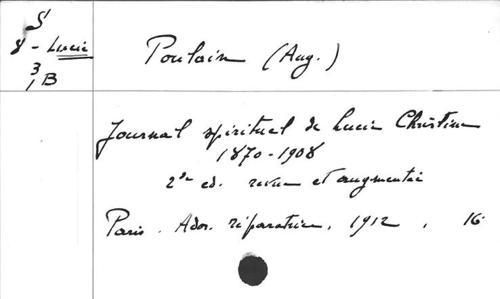 S
8 - Lucie
3
, B
Poulain (Aug.)
Journal spirituel de Lucie Christine
1870-1908
2de ed. revue et augmentée
Paris. Ador. réparatrice, 1912, 16